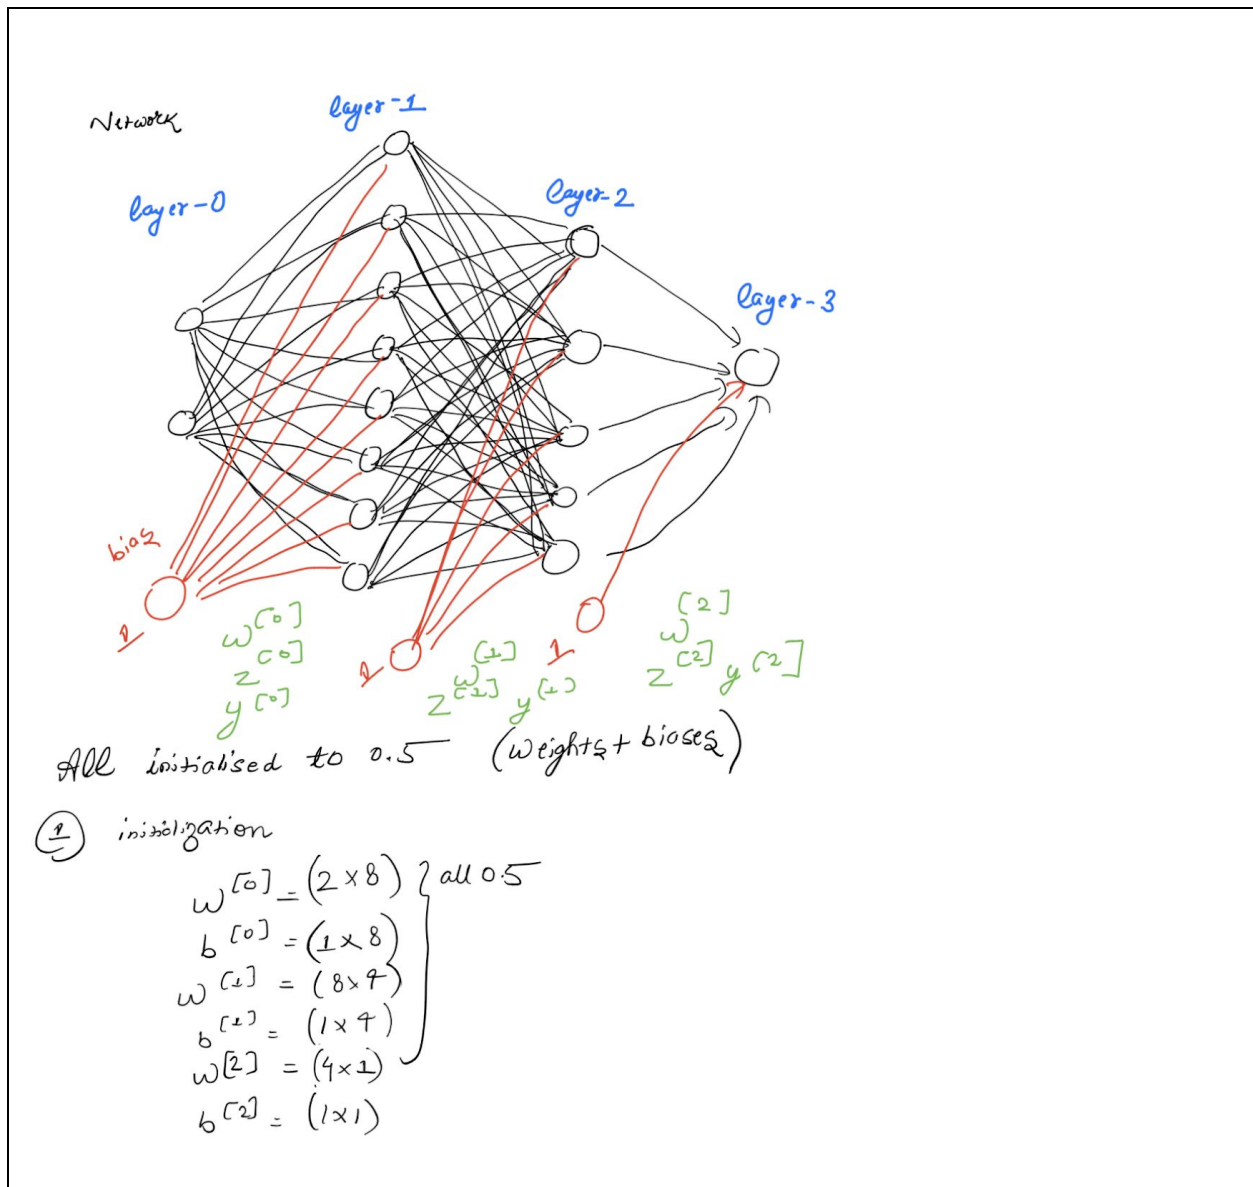 Network
layer-1
layer-0
layer-2
layer-3
bias
1
w^[0]
z^[0]
y^[0]
1
w^[1]
z^[1] y^[1]
1
w^[2]
z^[2] y^[2]
All initialised to 0.5 (weights + biases)
1 initialization
w^[0] = (2 x 8) } all 0.5
b^[0] = (1 x 8)
w^[1] = (8 x 4)
b^[1] = (1 x 4)
w[2] = (4 x 1)
b^[2] = (1 x 1)